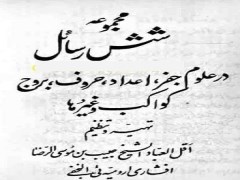 مجموعه
شش رسائل
در علوم جفر، اعداد، حروف، بروج
کواکب وغیرها
تهیه و تنظیم
اقل العباد الشیخ حبیب بن موسی الرضا
افشاری ارومیه‌ای النجفی